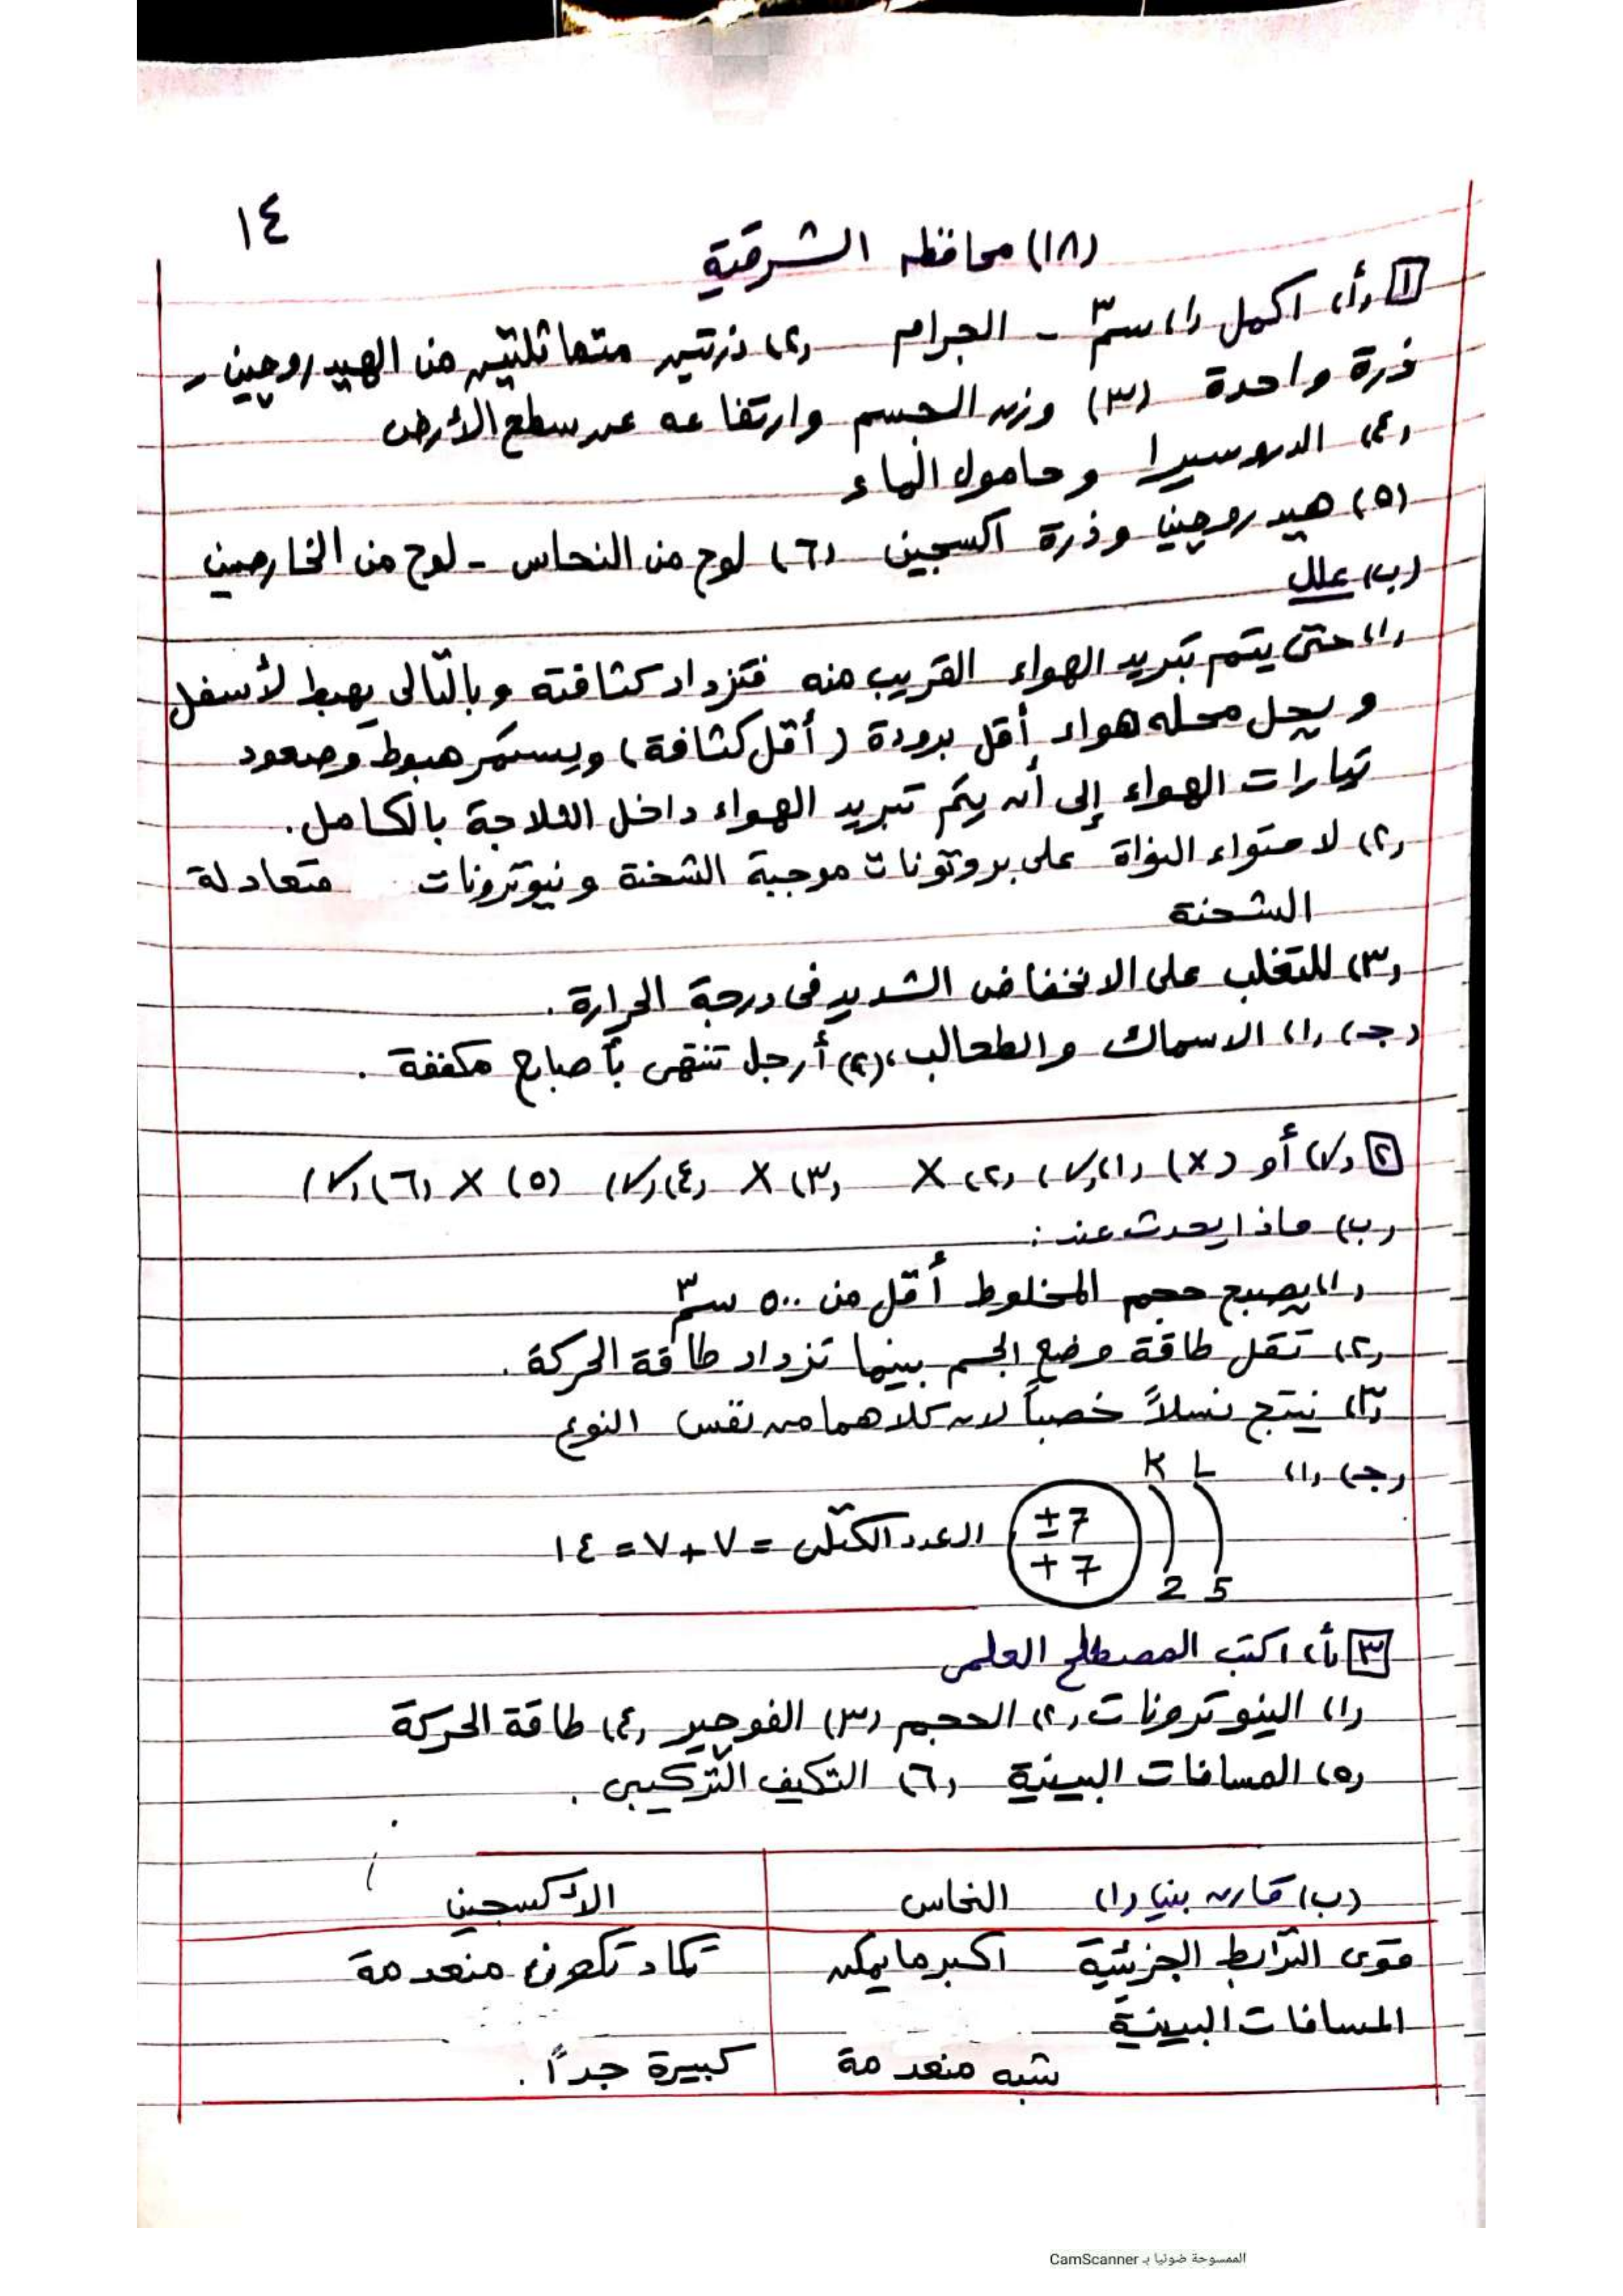 ١٤
(١٨) محافظه الشرقية
١ (أ) اكمل (١) سم٣ - الجرام (٢) ذرتين متماثلتين من الهيدروجين -
ذرة واحدة (٣) وزن الجسم وارتفاعه عن سطح الأرض
(٤) الدروسيرا وحامول الماء
(٥) هيدروجين وذرة اكسجين (٦) لوح من النحاس - لوح من الخارصين
(ب) علل
(١) حتى يتم تبريد الهواء القريب منه فتزداد كثافته وبالتالى يهبط لأسفل
ويحل محله هواء أقل برودة (أقل كثافة) ويستمر هبوط وصعود
تيارات الهواء إلى أن يتم تبريد الهواء داخل الثلاجة بالكامل.
(٢) لاحتواء النواة على بروتونات موجبة الشحنة ونيوترونات متعادلة
الشحنة
(٣) للتغلب على الانخفاض الشديد فى درجة الحرارة.
(جـ) (١) الاسماك والطحالب، (٢) أرجل تنتهى بأصابع مكففة.
٢ (√) أو (X) (١) (√) (٢) X (٣) X (٤) (√) (٥) X (٦) (√)
(ب) ماذا يحدث عند:
(١) يصبح حجم المخلوط أقل من ٥٠٠ سم٣
(٢) تقل طاقة وضع الجسم بينما تزداد طاقة الحركة.
(٣) ينتج نسلاً خصباً لان كلاهما من نفس النوع
(جـ) (١) K L
±7
+7 2 5 العدد الكتلى = ٧+٧ = ١٤
٣ (أ) اكتب المصطلح العلمى
(١) النيوترونات (٢) الحجم (٣) الفوجير (٤) طاقة الحركة
(٥) المسافات البينية (٦) التكيف التركيبى.
(ب) قارن بين (١) النحاس الأكسجين
قوى الترابط الجزيئية اكبر ما يمكن تكاد تكون منعدمة
المسافات البينية
شبه منعدمة كبيرة جداً.
الممسوحة ضوئيا بـ CamScanner